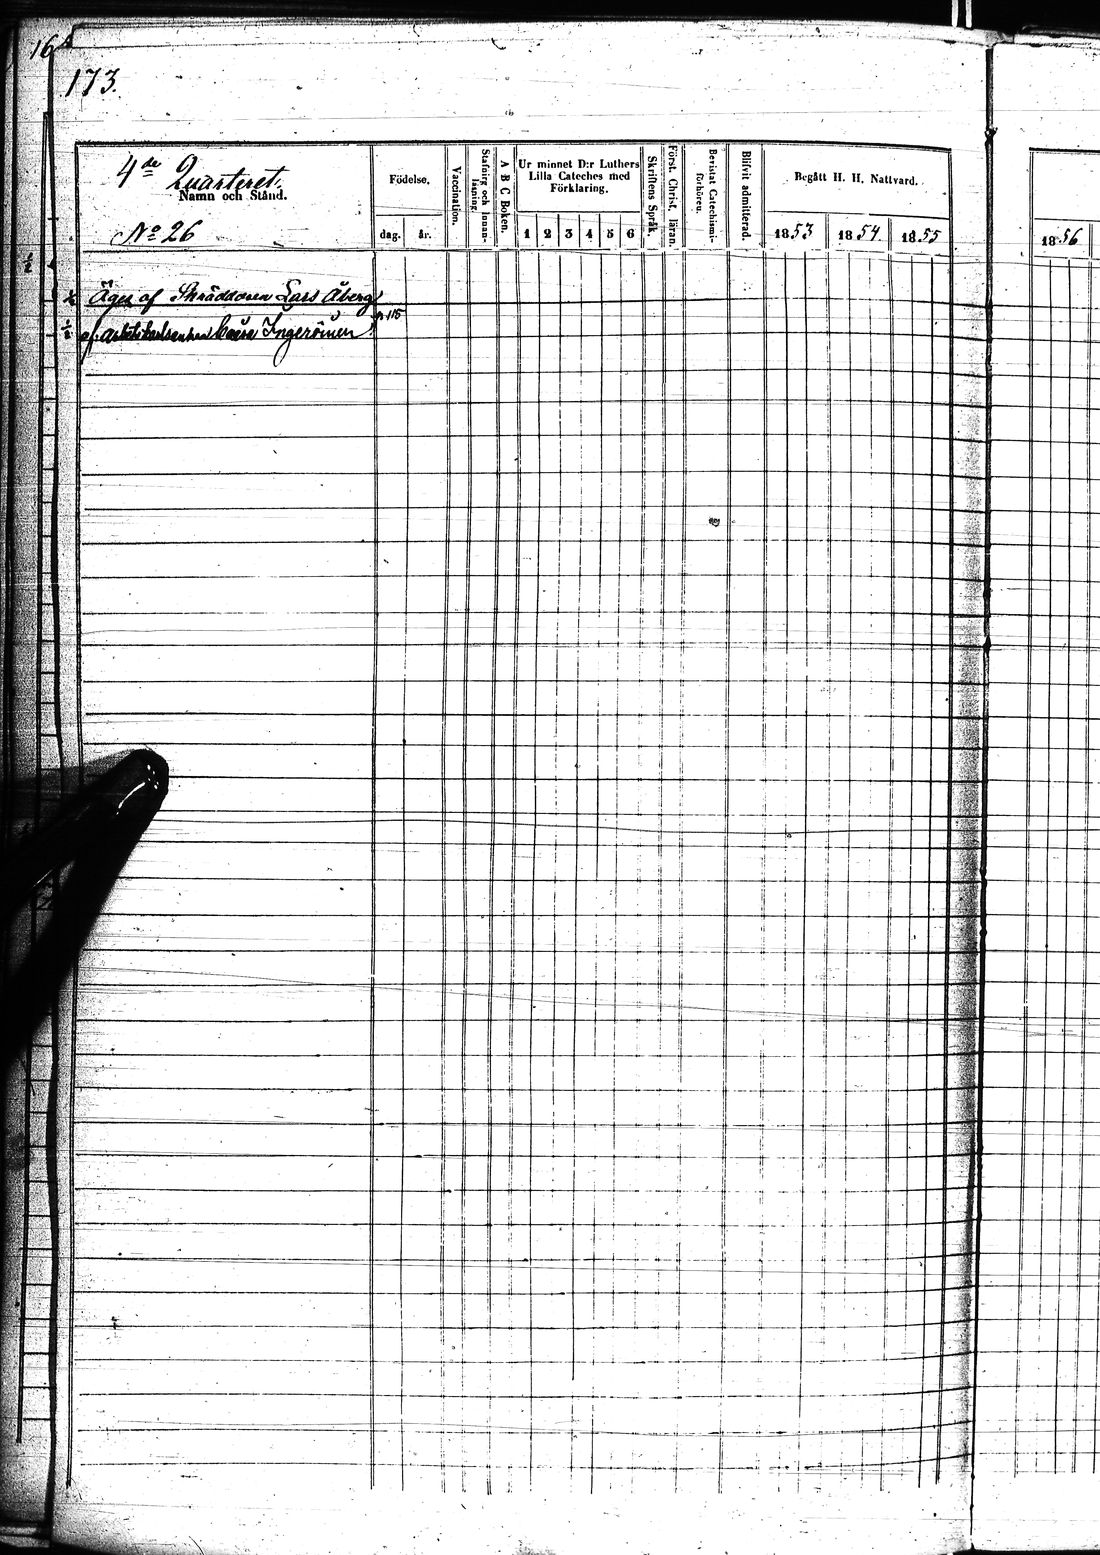 173.
4de Quarteret.
Namn och Stånd.
No 26
Födelse.
dag.
år.
Vaccination.
Stafning och Innan-
läsning.
A B C Boken.
Ur minnet D:r Luthers
Lilla Cateches med
Förklaring.
1 2 3 4 5 6
Skriftens Språk.
Först. Christ. läran.
Bevistat Catechismi-
förhören.
Blifvit admitterad.
Begått H. H. Nattvard.
1853
1854
1855
1856
½
½ Äges af Skräddaren Lars Åberg
½ af Enkan p 115